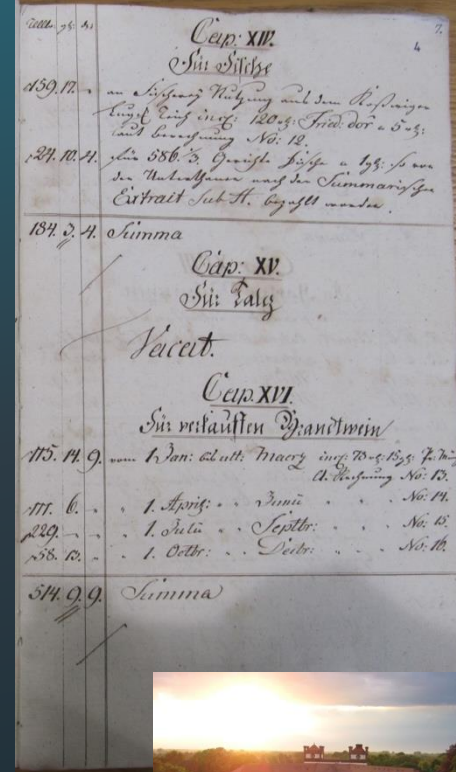 7.
4
Cap: XIV.
Für Fische
159. 17. - an Fischerey Nutzung aus dem
incl: 120 rt: Fried: dor a 5 rt:
laut berechnung No: 12.
24. 10. 4. für 586 1/3. Gerichte Fische a 1 gl: so von
den Unterthanen nach den Summarischen
Extrait sub A. bezahlt worden.
184. 3. 4. Summa
Cap: XV.
Für Talg
Vacat.
Cap. XVI.
Für verkauften Brandtwein
175. 14. 9. vom 1 Jan: bis ult: Marty incl: 73 rt: 15 gl:
A. Rechnung No: 13.
111. 6. - 1. April: Juny No: 14.
229. - - 1. July Septbr: No: 15.
58. 13. - 1. Octbr: Decbr: No: 16.
514. 9. 9. Summa